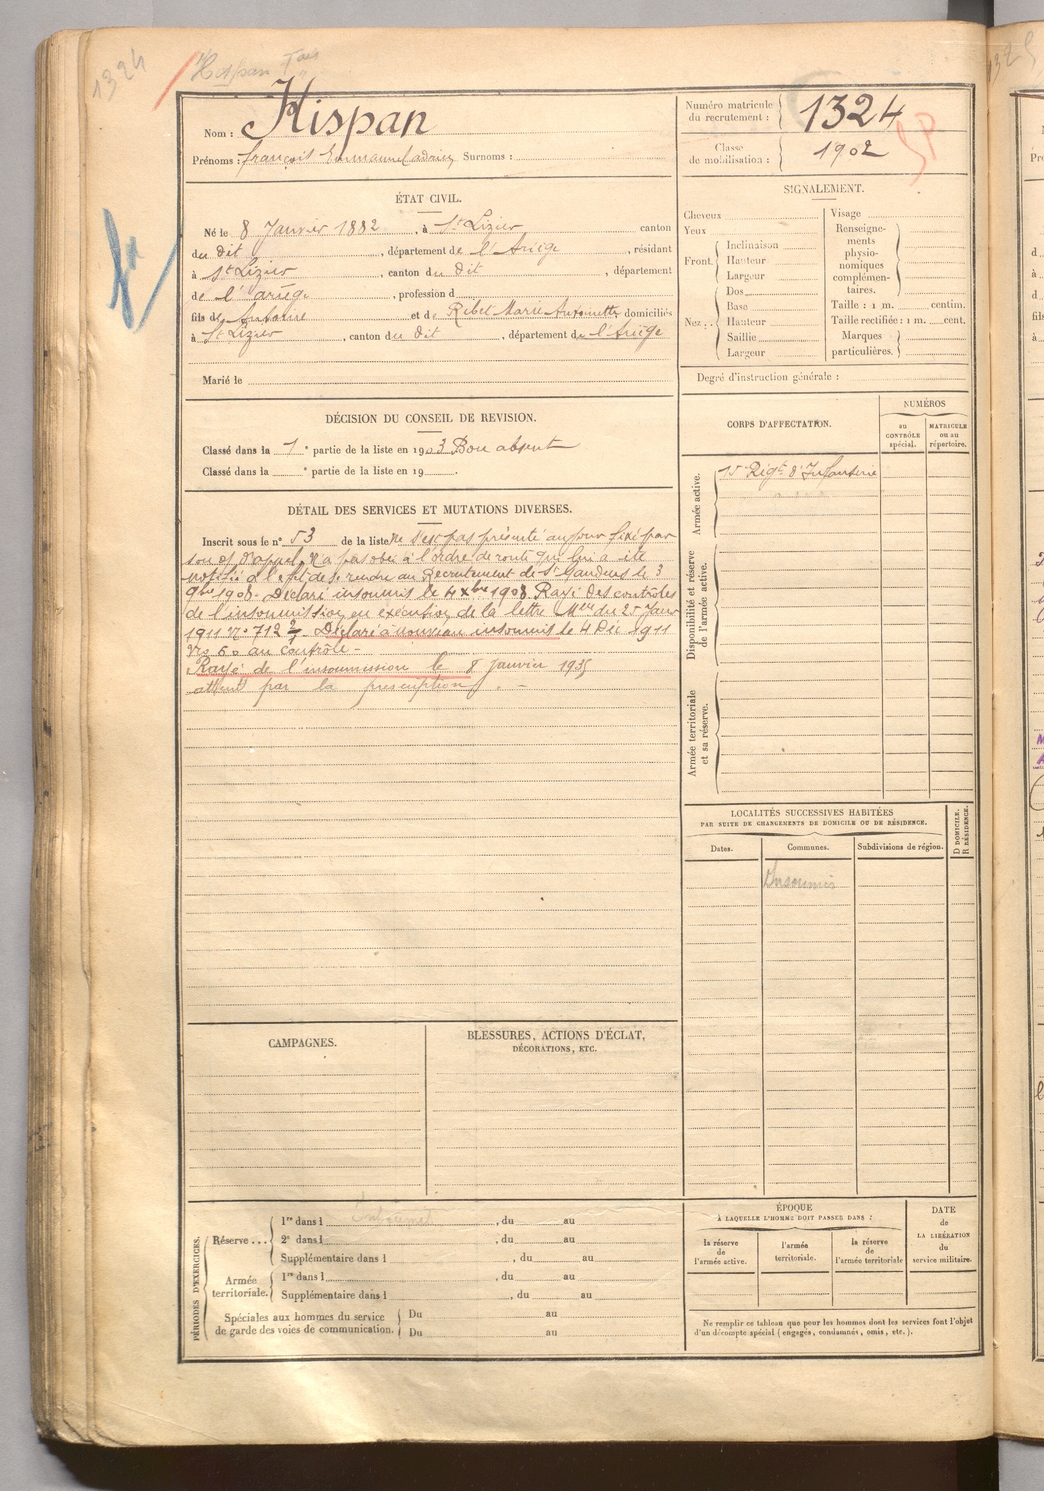 1324
Hispan Fois
Nom : Hispan
Prénoms : françois Emmanuel adrien Surnoms :
Numéro matricule
du recrutement : 1324
Classe
de mobilisation : 1902
SP
ÉTAT CIVIL.
Né le 8 Janvier 1882, à St Lizier canton
du dit, département de l'Ariège, résidant
à St Lizier, canton du Dit, département
de l'ariège, profession d
fils de Antoine et de Ribet Marie Antoinette domiciliés
à St Lizier, canton du dit, département de l'Ariège
Marié le
SIGNALEMENT.
Cheveux
Yeux
Front.
Inclinaison
Hauteur
Largeur
Nez :
Dos
Base
Hauteur
Saillie
Largeur
Visage
Renseigne-
ments
physio-
nomiques
complémen-
taires.
Taille : 1 m. centim.
Taille rectifiée : 1 m. cent.
Marques
particulières.
Degré d'instruction générale :
DÉCISION DU CONSEIL DE REVISION.
Classé dans la 1e partie de la liste en 1903 Bon absent
Classé dans la e partie de la liste en 19 .
DÉTAIL DES SERVICES ET MUTATIONS DIVERSES.
Inscrit sous le n° 53 de la liste Ne s'est pas présenté au jour fixé par
son of d'appel, N'a pas obéi à l'ordre de route qui lui a été
notifié à l'eft de se rendre au Recrutement de St Gaudens le 3
9bre 1908. Déclaré insoumis le 4 Xbre 1908. Rayé des contrôles
de l'insoumission en exécution de la lettre Melle du 25 Janv
1911 No 712 2/1. Déclaré à nouveau insoumis le 4 Déc 1911
No 60 au contrôle -
Rayé de l'insoumission le 8 janvier 1935
atteint par la prescription. -
CORPS D'AFFECTATION.
NUMÉROS
au
CONTRÔLE
spécial.
MATRICULE
ou au
répertoire.
Armée active.
15e Rigt d'Infanterie
Disponibilité et réserve
de l'armée active.
Armée territoriale
et sa réserve.
LOCALITÉS SUCCESSIVES HABITÉES
PAR SUITE DE CHANGEMENTS DE DOMICILE OU DE RÉSIDENCE.
Dates.
Communes.
Subdivisions de région.
D DOMICILE.
R RÉSIDENCE.
Insoumis
CAMPAGNES.
BLESSURES, ACTIONS D'ÉCLAT,
DÉCORATIONS, ETC.
PÉRIODES D'EXERCICES.
Réserve ...
1re dans l Insoumis, du au
2e dans l , du au
Supplémentaire dans l , du au
Armée
territoriale.
1re dans l , du au
Supplémentaire dans l , du au
Spéciales aux hommes du service
de garde des voies de communication.
Du au
Du au
ÉPOQUE
À LAQUELLE L'HOMME DOIT PASSER DANS :
la réserve
de
l'armée active.
l'armée
territoriale.
la réserve
de
l'armée territoriale
DATE
de
LA LIBÉRATION
du
service militaire.
Ne remplir ce tableau que pour les hommes dont les services font l'objet
d'un décompte spécial (engagés, condamnés, omis, etc.).